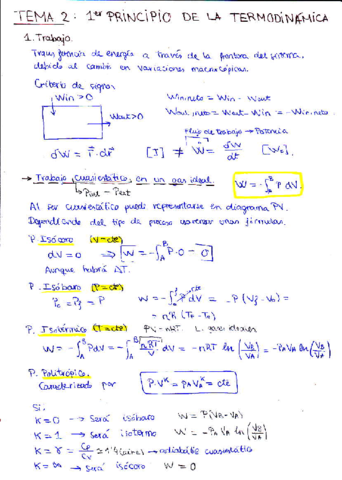 TEMA 2: 1er PRINCIPIO DE LA TERMODINÁMICA
1. Trabajo.
Transferencia de energía a través de la frontera del sistema
debido al cambio en variaciones macroscópicas.
Criterio de signos
Win>0
Wout>0
Win,neto = Win - Wout
Wout,neto = Wout - Win = -Win,neto.
Flujo de trabajo → Potencia
đW = F·dr [J] ≠ Ẇ = đW/dt [W].
→ Trabajo, cuasiestático, en un gas ideal. W = -∫_A^B P dV.
↳ Pint = Pext
Al ser cuasiestático puede representarse en diagrama PV.
Dependiendo del tipo de proceso usaremos unas fórmulas.
P. Isócoro (V=cte)
dV = 0 ⇒ W = -∫_A^B P·0 = 0
Aunque habrá ΔT.
P. Isóbaro (P=cte)
P0 = Pf = P W = -∫ P dV = -P(Vf - V0) =
= nR (T0 - Tf)
P. Isotérmico (T=cte) PV = nRT. L. gases ideales
W = -∫_A^B P dV = -∫_A^B nRT/V dV = -nRT ln(VB/VA) = -PAVA ln(VB/VA)
P. Politrópico.
Caracterizado por P·V^K = PA VA^K = cte
Si:
K=0 → Será isóbaro W = P(VB-VA)
K=1 → Será isotermo W = -PA VA ln(VB/VA)
K=γ = Cp/Cv ≃ 1'4 (aire) → adiabático cuasiestático
K=∞ → Será isócoro W = 0